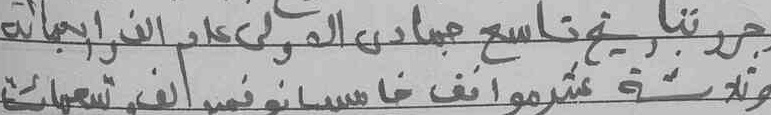 حرر بتاريخ تاسع جمادى الاولى عام الف واربعمائة
وثلاثة عشر موافق خامس نوفمبر الف وتسعمائة